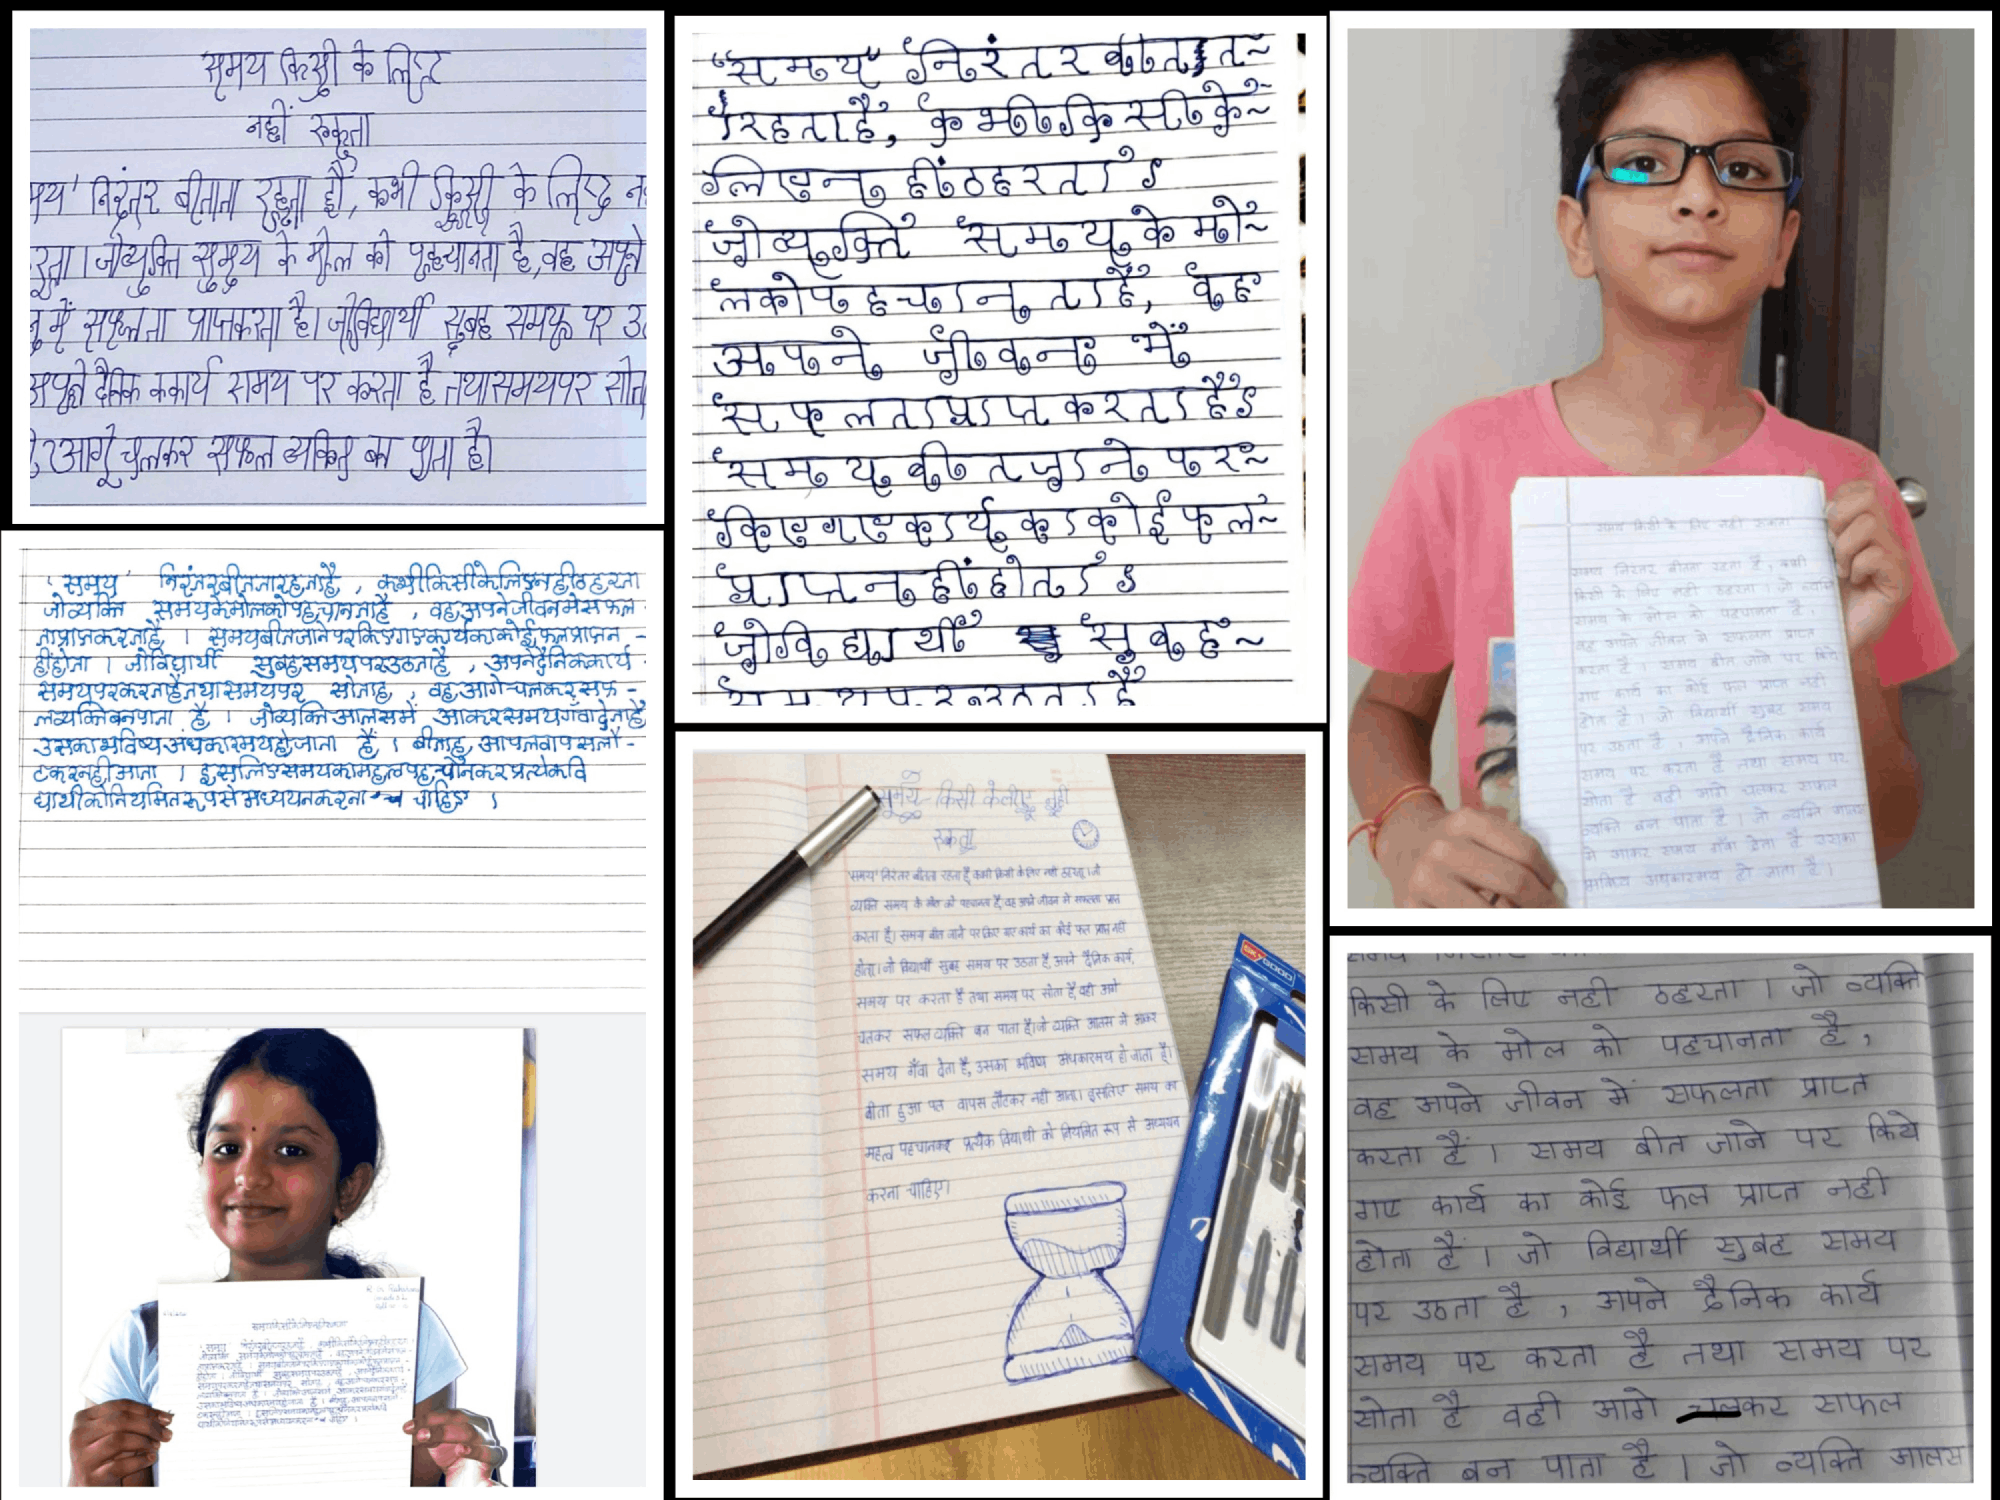 समय किसी के लिए
नहीं रुकता
मय' निरंतर बीतता रहता है, कभी किसी के लिए न
रता। जोव्यक्ति समय के मोल को पहचानता है, वह अपने
में सफलता प्राप्तकरता है। जोविद्यार्थी सुबह समय पर उ
अपने दैनिक ककार्य समय पर करता है तथासमयपर सोता
आगे चलकर सफल व्यक्ति बन पाता है।
'समय' निरंतरबीततारहताहै, कभीकिसीकेलिएनहींठहरता
जोव्यक्ति समयकेमोलकोपहचानताहै, वहअपनेजीवनमेसफल
ताप्राप्तकरताहै। समयबीतजानेपरकिएगएकार्यकाकोईफलप्राप्तन-
हींहोता। जोविद्यार्थी सुबहसमयपरउठताहै, अपनेदैनिककार्य
समयपरकरताहैतथासमयपर सोताह, वहआगेचलकरसफ-
लव्यक्तिबनपाता है। जोव्यक्तिआलसमें आकरसमयगँवादेताहै
उसकाभविष्यअंधकारमयहोजाता है। बीताहुआपलवापसलौ-
टकरनहीआता। इसलिएसमयकामहत्वपहचानकरप्रत्येकवि
द्यार्थीकोनियमितरूपसेअध्ययनकरना चाहिए।
"समय" निरंतर बीतता त~
रहता है, कभी किसी के~
लिए नहीं ठहरता।
जो व्यक्ति समय के मो~
ल को पहचानता है, वह
अपने जीवन में
सफलता प्राप्त करता है।
समय बीत जाने पर~
किए गए कार्य का कोई फल~
प्राप्त नहीं होता।
जो विद्यार्थी सुबह~
समय किसी के लीए नही
रुकता
'समय' निरंतर बीतता रहता है, कभी किसी के लिए नही ठहरता। जो
व्यक्ति समय के मोल को पहचानता है, वह अपने जीवन मे सफलता प्राप्त
करता है। समय बीत जाने पर किए गए कार्य का कोई फल प्राप्त नही
होता। जो विद्यार्थी सुबह समय पर उठता है, अपने दैनिक कार्य,
समय पर करता है तथा समय पर सोता है, वही आगे
चलकर सफल व्यक्ति बन पाता है। जो व्यक्ति आलस मे आकर
समय गँवा देता है, उसका भविष्य अंधकारमय हो जाता है।
बीता हुआ पल वापस लौटकर नही आता। इसलिए समय का
महत्व पहचानकर प्रत्येक विद्यार्थी को नियमित रूप से अध्ययन
करना चाहिए।
समय किसी के लिए नही रुकता
समय निरंतर बीतता रहता है, कभी
किसी के लिए नही ठहरता। जो व्यक्ति
समय के मोल को पहचानता है,
वह अपने जीवन मे सफलता प्राप्त
करता है। समय बीत जाने पर किये
गए कार्य का कोई फल प्राप्त नही
होता है। जो विद्यार्थी सुबह समय
पर उठता है, अपने दैनिक कार्य
समय पर करता है तथा समय पर
सोता है वही आगे चलकर सफल
व्यक्ति बन पाता है। जो व्यक्ति आलस
मे आकर समय गँवा देता है उसका
भविष्य अंधकारमय हो जाता है।
किसी के लिए नही ठहरता। जो व्यक्ति
समय के मोल को पहचानता है,
वह अपने जीवन में सफलता प्राप्त
करता हैं। समय बीत जाने पर किये
गए कार्य का कोई फल प्राप्त नही
होता हैं। जो विद्यार्थी सुबह समय
पर उठता है, अपने दैनिक कार्य
समय पर करता है तथा समय पर
सोता है वही आगे चलकर सफल
व्यक्ति बन पाता है। जो व्यक्ति आलस